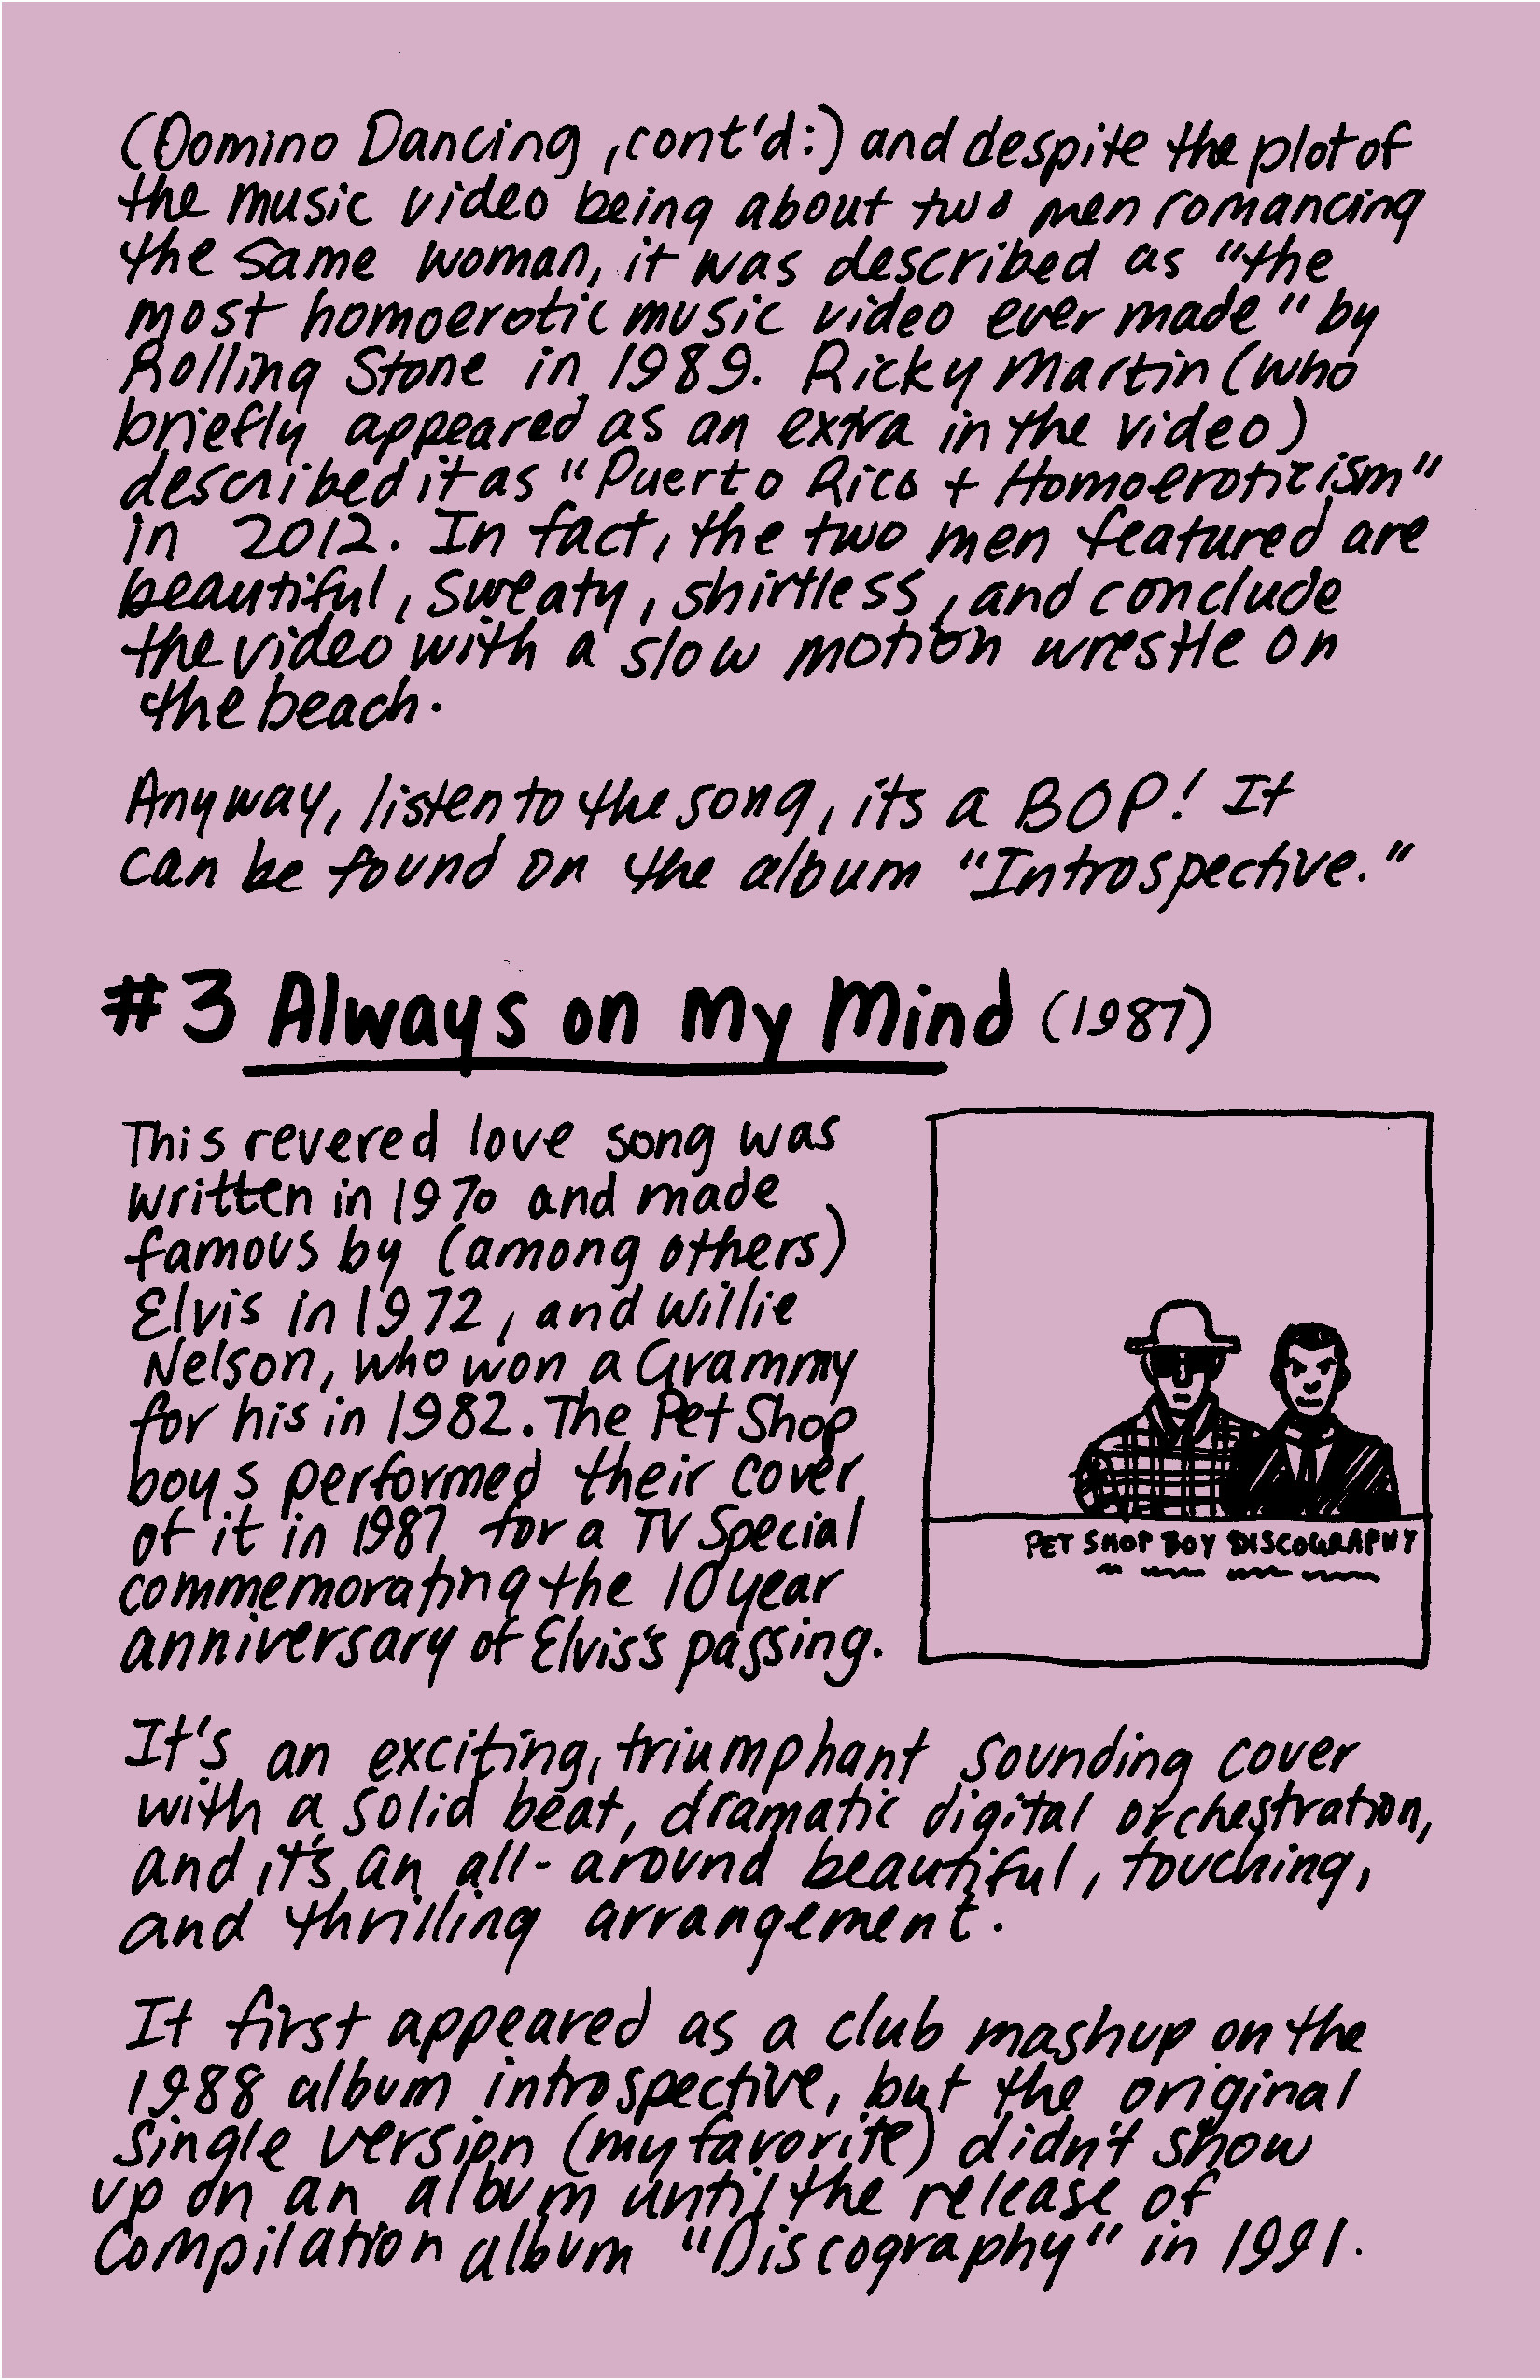 (Domino Dancing, cont'd:) and despite the plot of
the music video being about two men romancing
the same woman, it was described as "the
most homoerotic music video ever made" by
Rolling Stone in 1989. Ricky Martin (who
briefly appeared as an extra in the video)
described it as "Puerto Rico + Homoeroticism"
in 2012. In fact, the two men featured are
beautiful, sweaty, shirtless, and conclude
the video with a slow motion wrestle on
the beach.
Anyway, listen to the song, its a BOP! It
can be found on the album "Introspective."
#3 Always on My Mind (1987)
This revered love song was
written in 1970 and made
famous by (among others)
Elvis in 1972, and Willie
Nelson, who won a Grammy
for his in 1982. The Pet Shop
boys performed their cover
of it in 1987 for a TV Special
commemorating the 10 year
anniversary of Elvis's passing.
PET SHOP BOY DISCOGRAPHY
It's an exciting, triumphant sounding cover
with a solid beat, dramatic digital orchestration,
and it's an all-around beautiful, touching,
and thrilling arrangement.
It first appeared as a club mashup on the
1988 album introspective, but the original
single version (my favorite) didn't show
up on an album until the release of
Compilation album "Discography" in 1991.